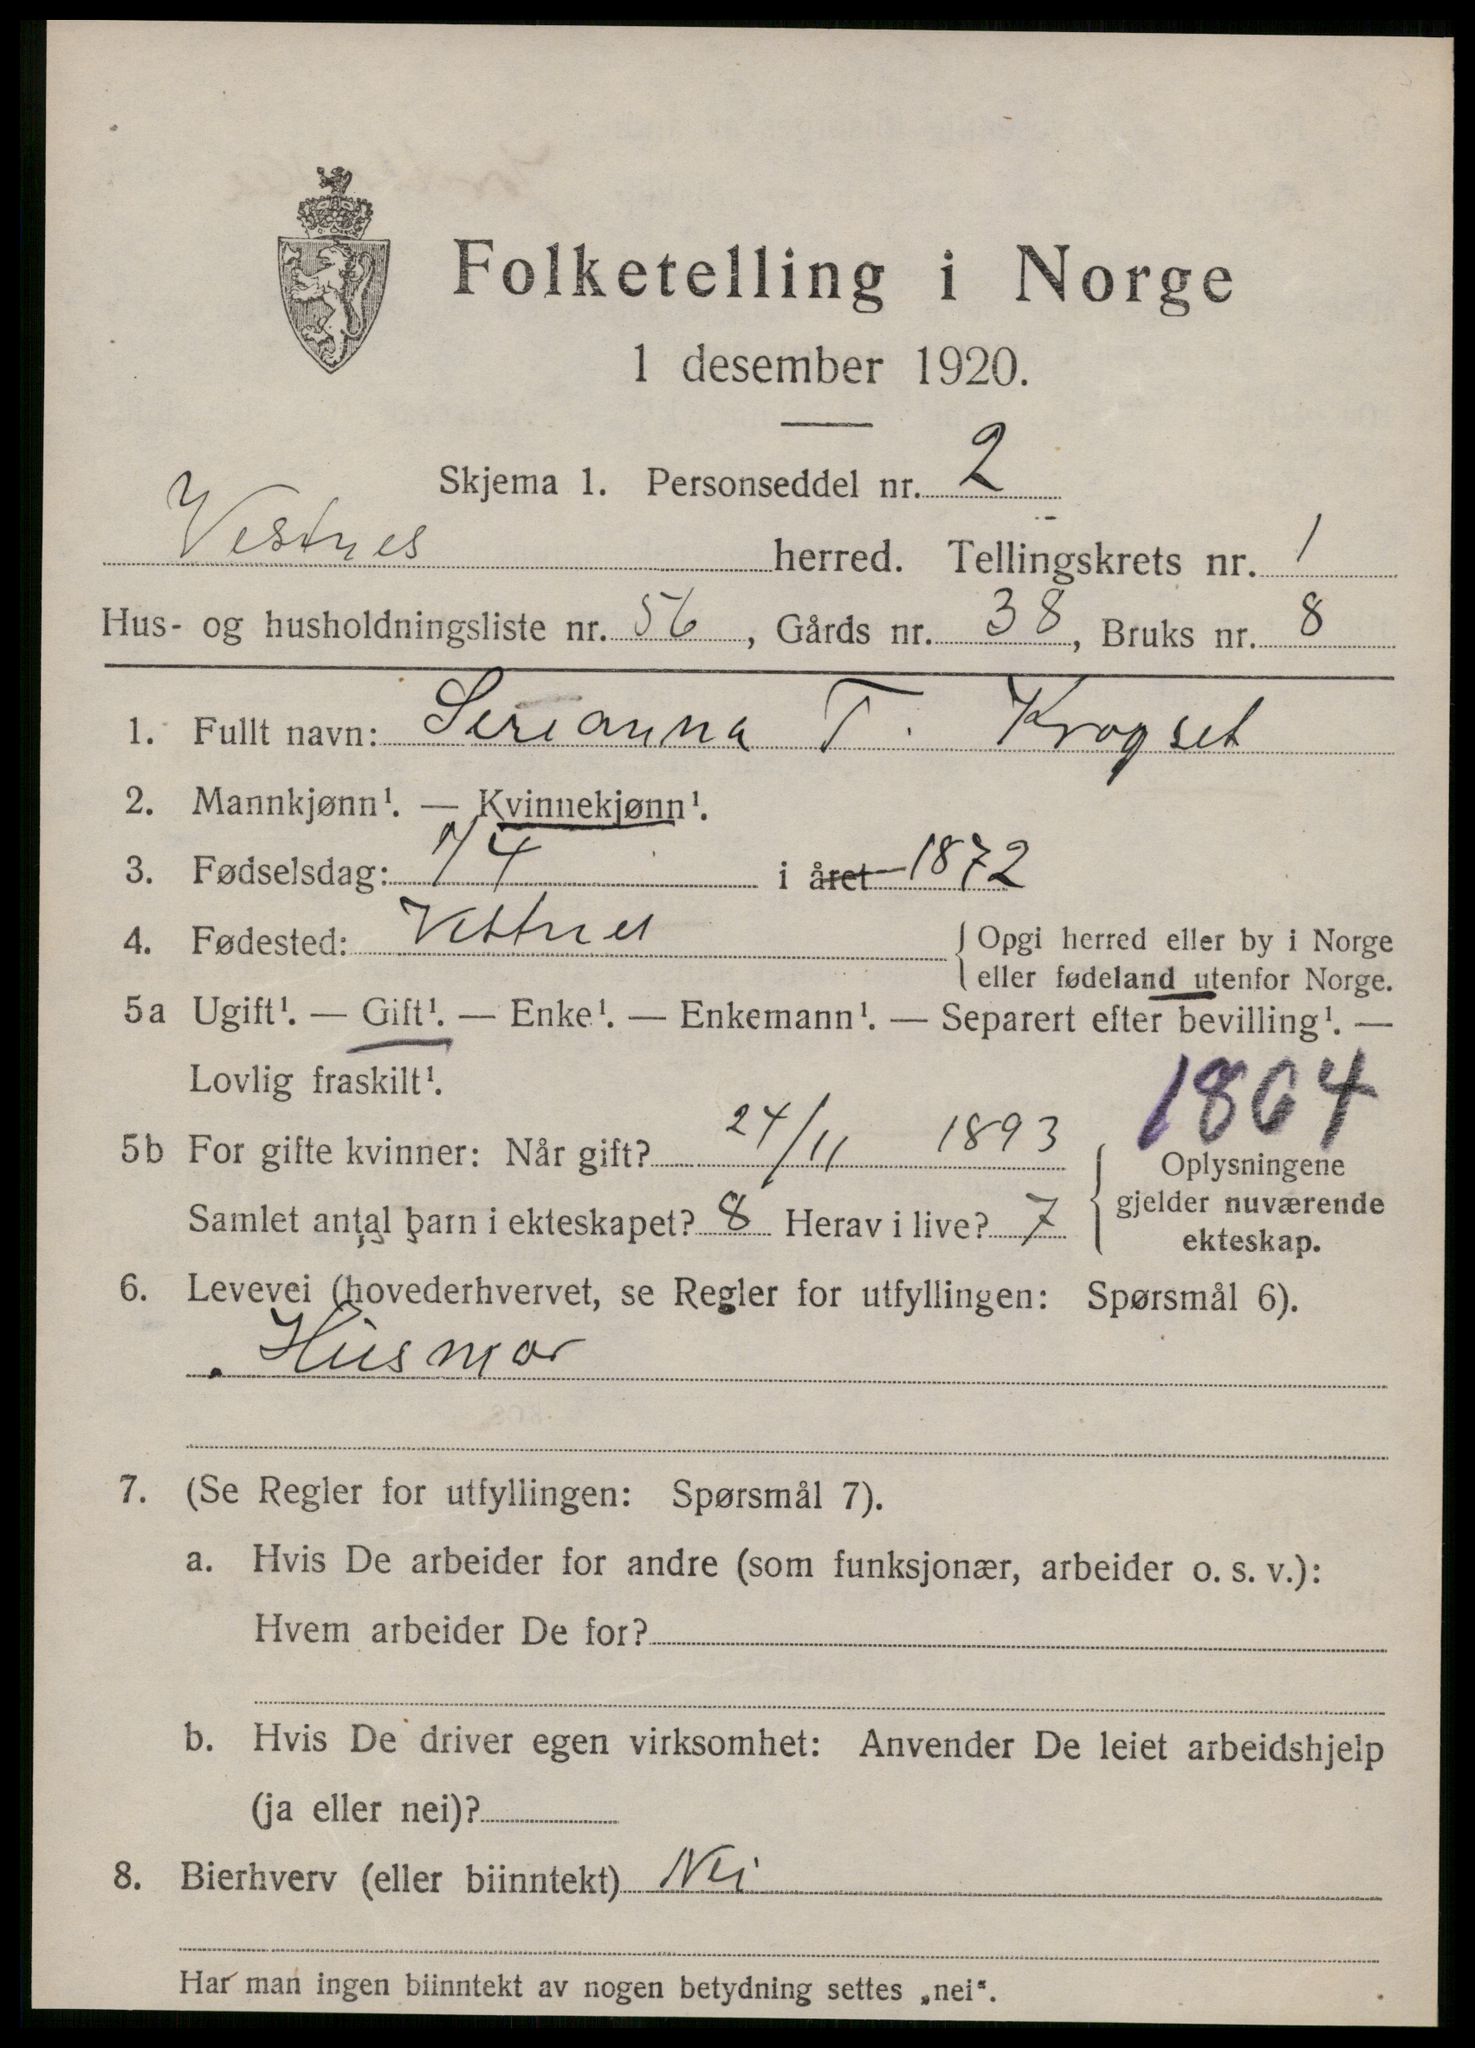 Folketelling i Norge
1 desember 1920.
Skjema 1. Personseddel nr. 2
Vestnes herred. Tellingskrets nr. 1
Hus- og husholdningsliste nr. 56, Gårds nr. 38, Bruks nr. 8
1. Fullt navn: Serianna T. Krogset
2. Mannkjønn¹. — Kvinnekjønn¹.
3. Fødselsdag: 1/4 i året 1872
4. Fødested: Vestnes { Opgi herred eller by i Norge
eller fødeland utenfor Norge.
5a Ugift¹. — Gift¹. — Enke¹. — Enkemann¹. — Separert efter bevilling¹. —
Lovlig fraskilt¹.
1864
5b For gifte kvinner: Når gift? 24/11 1893
Samlet antal barn i ekteskapet? 8 Herav i live? 7
Oplysningene
gjelder nuværende
ekteskap.
6. Levevei (hovederhvervet, se Regler for utfyllingen: Spørsmål 6).
Husmor
7. (Se Regler for utfyllingen: Spørsmål 7).
a. Hvis De arbeider for andre (som funksjonær, arbeider o. s. v.):
Hvem arbeider De for?
b. Hvis De driver egen virksomhet: Anvender De leiet arbeidshjelp
(ja eller nei)?
8. Bierhverv (eller biinntekt) Nei
Har man ingen biinntekt av nogen betydning settes „nei“.